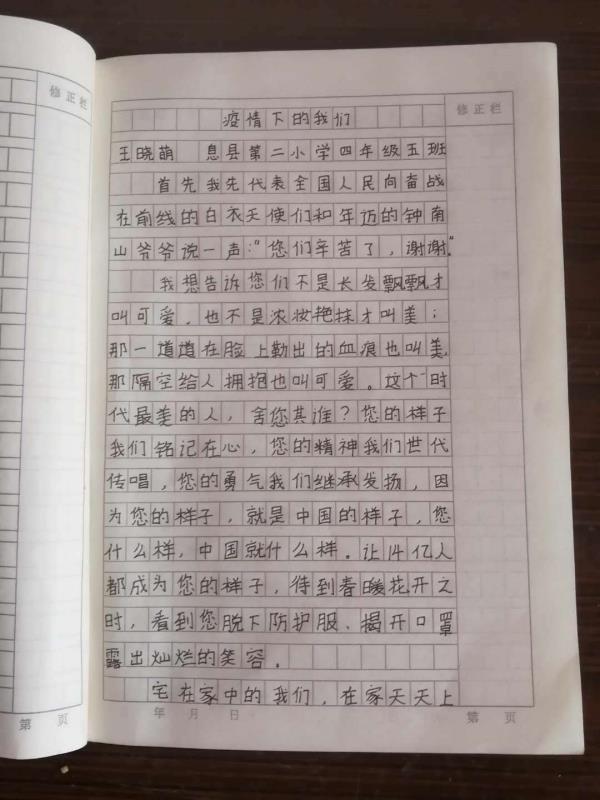 修正栏
修正栏
疫情下的我们
王晓萌 息县第二小学四年级五班
首先我先代表全国人民向奋战
在前线的白衣天使们和年迈的钟南
山爷爷说一声:“您们辛苦了,谢谢。”
我想告诉您们不是长发飘飘才
叫可爱,也不是浓妆艳抹才叫美;
那一道道在脸上勒出的血痕也叫美,
那隔空给人拥抱也叫可爱。这个时
代最美的人,舍您其谁?您的样子
我们铭记在心,您的精神我们世代
传唱,您的勇气我们继承发扬,因
为您的样子,就是中国的样子,您
什么样,中国就什么样。让14亿人
都成为您的样子,待到春暖花开之
时,看到您脱下防护服、揭开口罩
露出灿烂的笑容。
宅在家中的我们,在家天天上
第 页
年 月 日
第 页